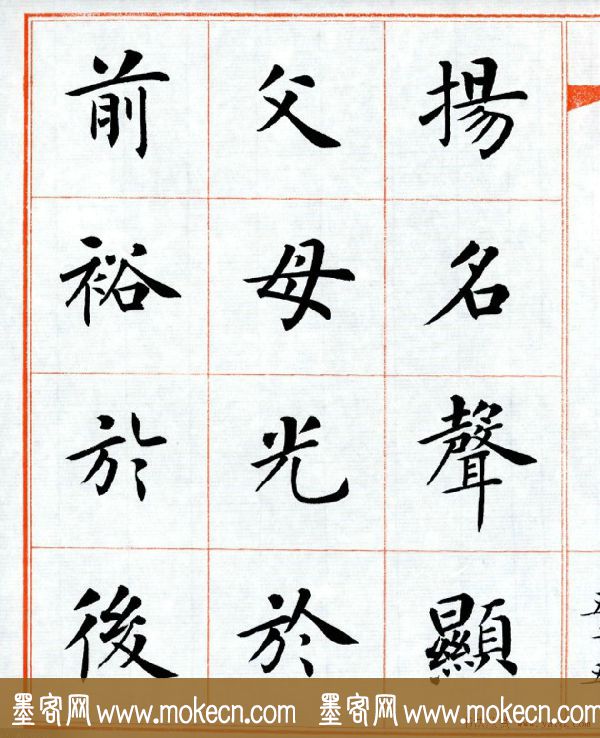 揚名聲顯
父母光於
前裕於後
墨客网 www.mokecn.com 墨客网 www.mokecn.com